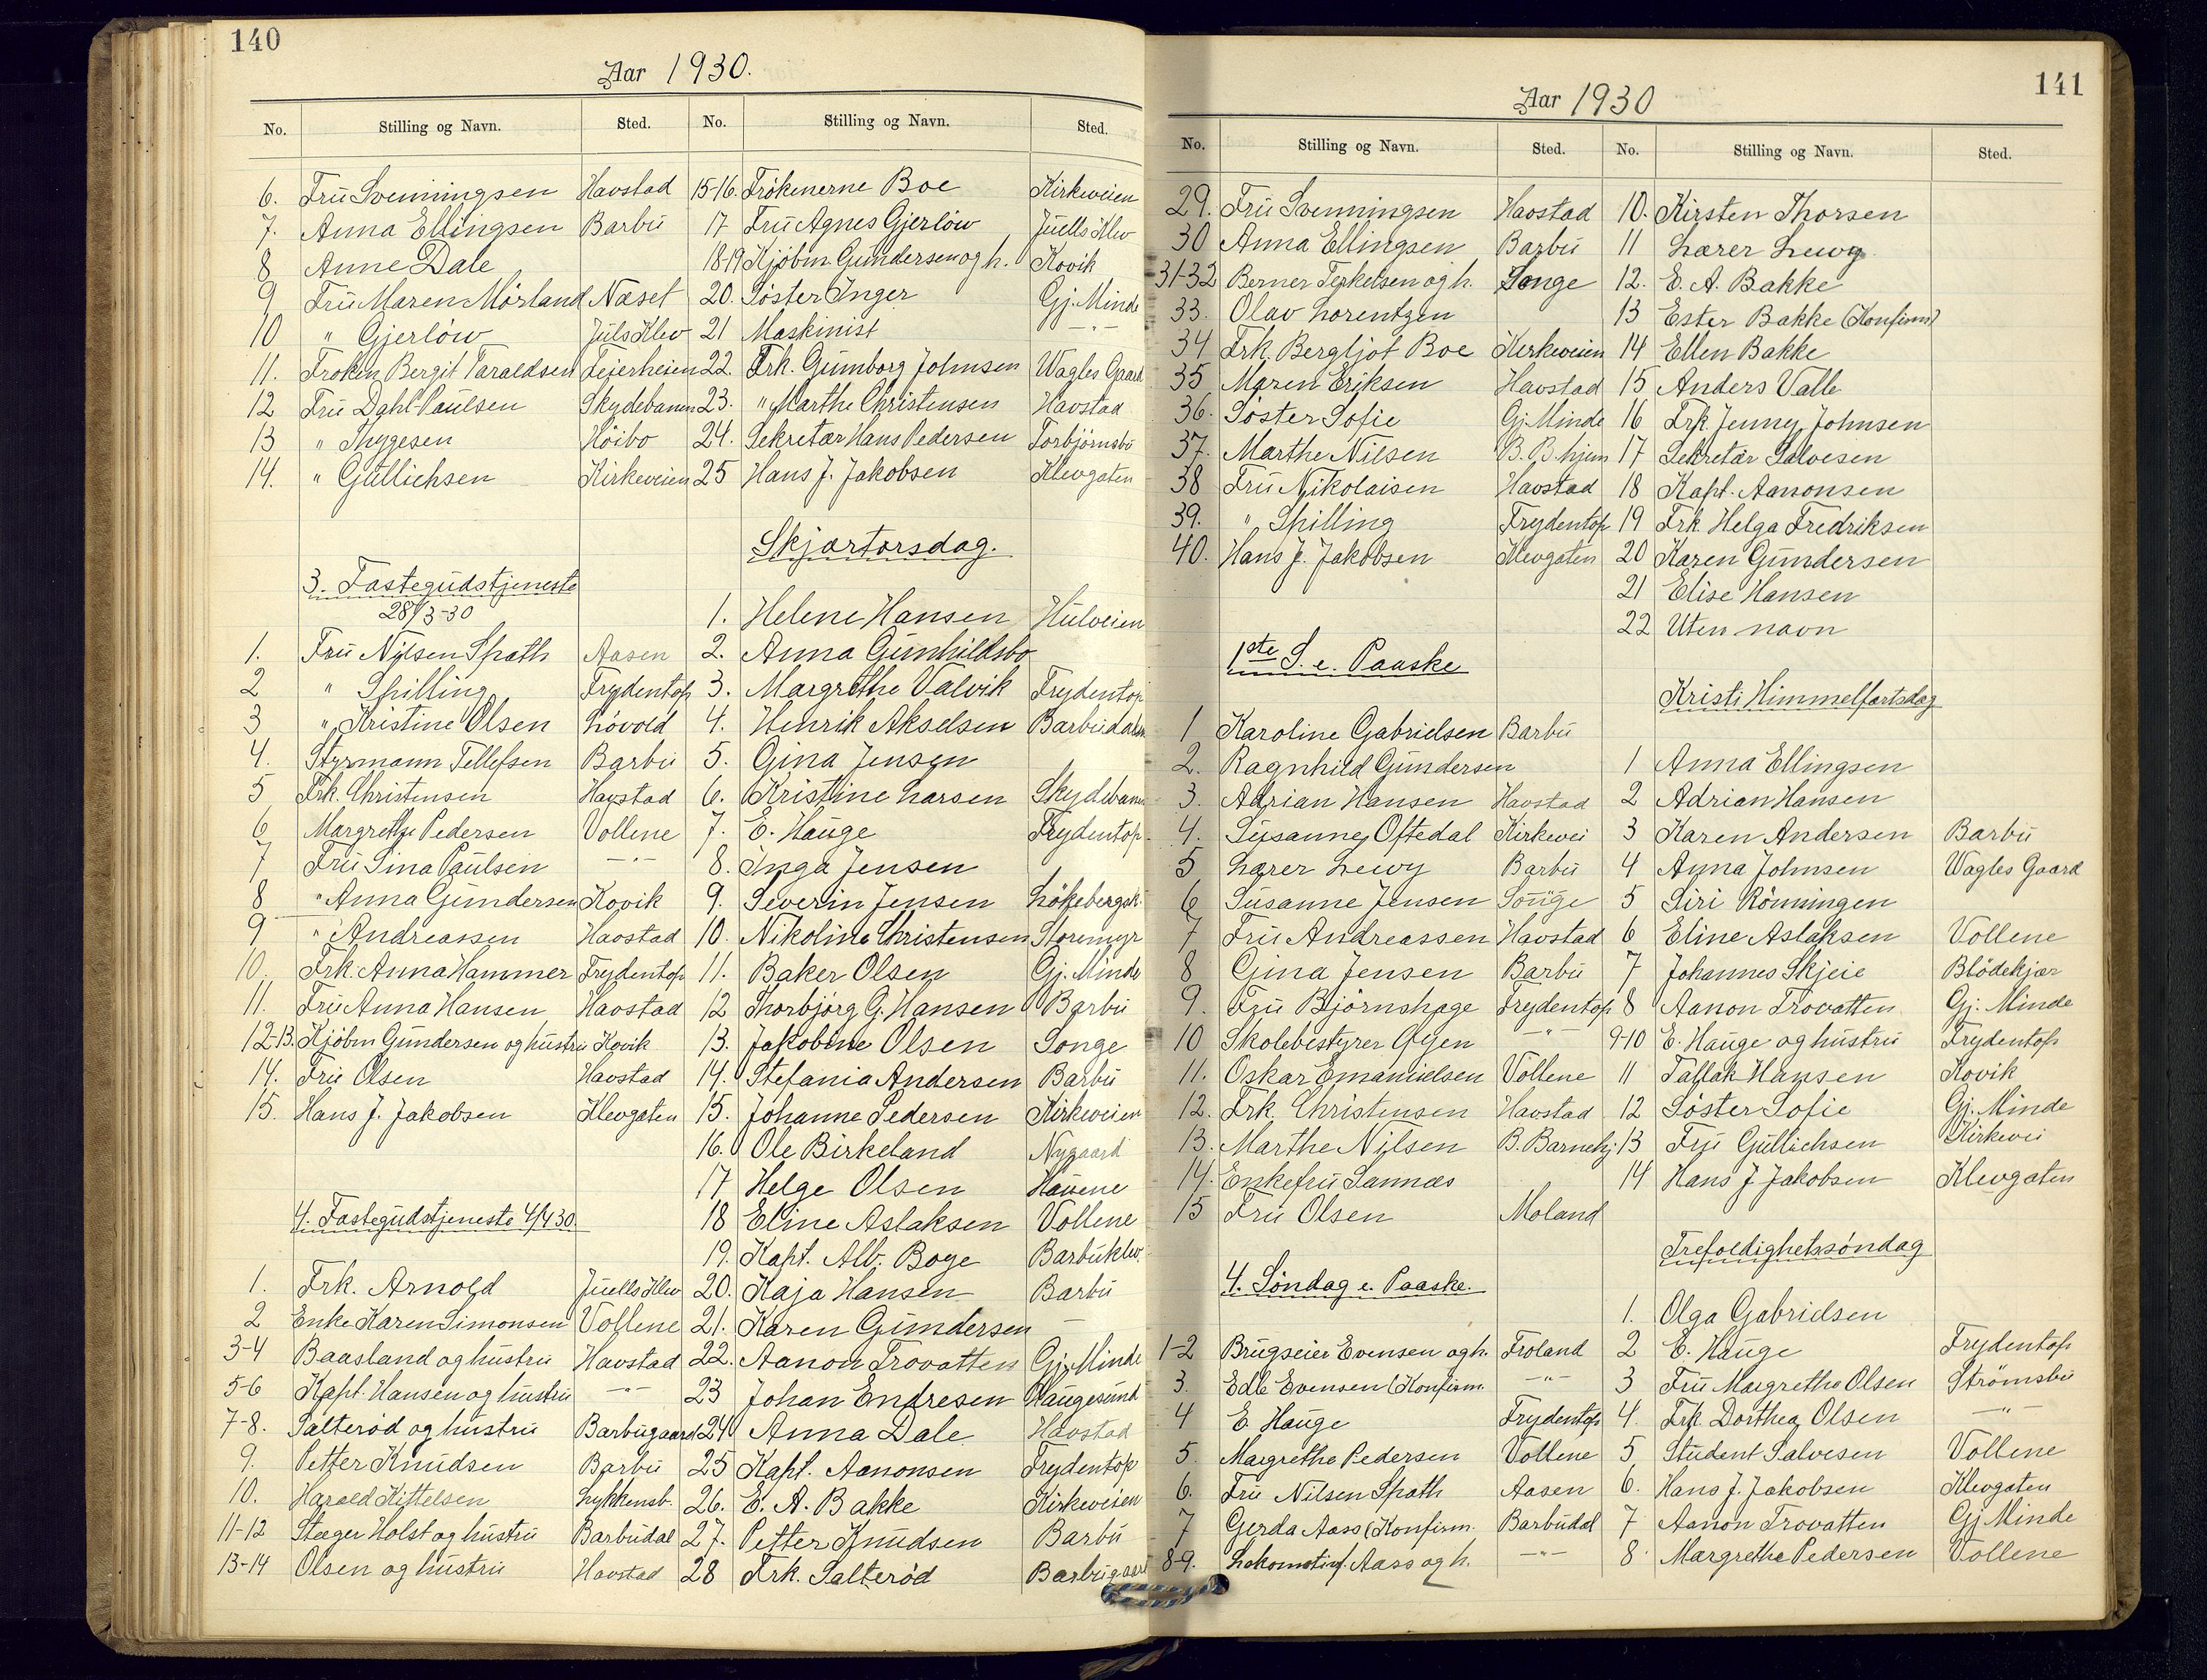 140
Aar 1930.
No. Stilling og Navn. Sted.
6. Fru Svenningsen Havstad
7. Anna Ellingsen Barbu
8 Anne Dale
9 Fru Maren Mörland Næset
10 " Gjerlöw Juls Klev
11. Froken Bergit Taraldsen Feierheien
12 Fru Dahl-Paulsen Skydebanen
13 " Thygesen Höibo
14. " Gullichsen Kirkeveien
3. Fastegudstjeneste
28/3-30
1. Fru Nilsen Spath Aasen
2 " Spilling Frydentop
3 " Kristine Olsen Lövold
4. Styrmann Tellefsen Barbu
5 Frk. Christensen Havstad
6 Margrethe Pedersen Vollene
7 Fru Sina Paulsen —"—
8 " Anna Gundersen Kovik
9 " Andreassen Havstad
10. Frk. Anna Hammer Frydentop
11. Fru Anna Hansen Havstad
12-13. Kjöbm Gundersen og hustru Kovik
14. Fru Olsen Havstad
15. Hans J. Jakobsen Klevgaten
4. Fastegudstjeneste 4/4 30.
1. Frk. Arnold Juells Klev
2 Enke Karen Simonsen Vollene
3-4 Baasland og hustru Havstad
5-6 Kapt. Hansen og hustru —"—
7-8. Salteröd og hustru Barbugaard
9. Petter Knudsen Barbu
10. Harald Kittelsen Lykkensb.
11-12 Stæger Holst og hustru Barbudal
13-14 Olsen og hustru Havstad
No. Stilling og Navn. Sted.
15-16. Frökenerne Boe Kirkeveien
17 Fru Agnes Gjerlöw Juells Klev
18-19 Kjöbm. Gundersen og h. Kovik
20. Söster Inger Gj. Minde
21 Maskinist —"—
22. Frk. Gunborg Johnsen Wagles Gaard
23. " Marthe Christensen Havstad
24. Sekretær Hans Pedersen Torbjörnsbu
25 Hans J. Jakobsen Klevgaten
Skjærtorsdag.
1. Helene Hansen Hulveien
2. Anna Gunhildsbo
3. Margrethe Valvik Frydentop
4. Henrik Akselsen Barbudalen
5. Gina Jensen
6. Kristine Larsen Skydebanen
7. E. Hauge Frydentop.
8. Inga Jensen
9. Severin Jensen Lökebergsk.
10. Nikoline Christensen Storemyr
11. Baker Olsen Gj. Minde
12 Thorbjörg G. Hansen Barbu
13. Jakobine Olsen Songe
14. Stefania Andersen Barbu
15. Johanne Pedersen Kirkeveien
16. Ole Birkeland Nygaard
17. Helge Olsen Hauene
18 Eline Aslaksen Vollene
19. Kapt. Alb. Boye Barbuklev.
20. Kaja Hansen Barbu
21. Karen Gundersen —
22. Aanon Trovatten Gj. Minde
23 Johan Endresen Haugesund
24 Anna Dale Havstad
25 Kapt. Aanonsen Frydentop
26. E. A. Bakke Kirkeveien
27. Petter Knudsen Barbu
28 Frk. Salteröd Barbugaard
141
Aar 1930
No. Stilling og Navn. Sted.
29. Fru Svenningsen Havstad
30 Anna Ellingsen Barbu
31-32 Berner Terkelsen og h. Songe
33. Olav Lorentzen
34 Frk. Bergljot Boe Kirkeveien
35 Maren Eriksen Havstad
36. Söster Sofie Gj. Minde
37. Marthe Nilsen B. B. hjem
38 Fru Nikolaisen Havstad
39. " Spilling Frydentop
40. Hans J. Jakobsen Klevgaten
1ste S. e. Paaske
1 Karoline Gabrielsen Barbu
2. Ragnhild Gundersen
3. Adrian Hansen Havstad
4. Susanne Oftedal Kirkevei
5 Lærer Lewy Barbu
6 Susanne Jensen Songe
7 Fru Andreassen Havstad
8 Gina Jensen Barbu
9. Fru Björnshage Frydentop
10 Skolebestyrer Öyen —"—
11. Oskar Emanuelsen Vollene
12. Frk. Christensen Havstad
13. Marthe Nilsen B. Barnehj.
14. Enkefru Sannæs
15 Fru Olsen Moland
4. Söndag e. Paaske.
1-2 Brugseier Evensen og h. Froland
3. Edle Evensen (Konfirm. —"—
4 E. Hauge Frydentop
5. Margrethe Pedersen Vollene
6. Fru Nilsen Spath Aasen
7 Gerda Aass (Konfirm. Barbudal
8-9. Lokomotivf. Aass og h. —"—
No. Stilling og Navn. Sted.
10. Kirsten Thorsen
11 Lærer Lewy
12. E. A. Bakke
13 Ester Bakke (Konfirm)
14 Ellen Bakke
15 Anders Valle
16 Frk. Jenny Johnsen
17 Sekretær Salvesen
18 Kapt. Aanonsen
19 Frk. Helga Fredriksen
20 Karen Gundersen
21 Elise Hansen
22 Uten navn
Kristi Himmelfartsdag
1 Anna Ellingsen
2 Adrian Hansen
3 Karen Andersen Barbu
4 Anna Johnsen Wagles Gaard
5 Siri Rönningen
6 Eline Aslaksen Vollene
7 Johannes Skjeie Blödekjær
8 Aanon Trovatten Gj. Minde
9-10 E. Hauge og hustru Frydentop
11 Tallak Hansen Kovik
12 Söster Sofie Gj. Minde
13 Fru Gullichsen Kirkevei
14 Hans J Jakobsen Klevgaten
Trefoldighetssöndag
1. Olga Gabrielsen
2 E. Hauge Frydentop
3 Fru Margrethe Olsen Strömsbu
4. Frk. Dorthea Olsen —"—
5 Student Salvesen Vollene
6. Hans J. Jakobsen Klevgaten
7 Aanon Trovatten Gj Minde
8. Margrethe Pedersen Vollene